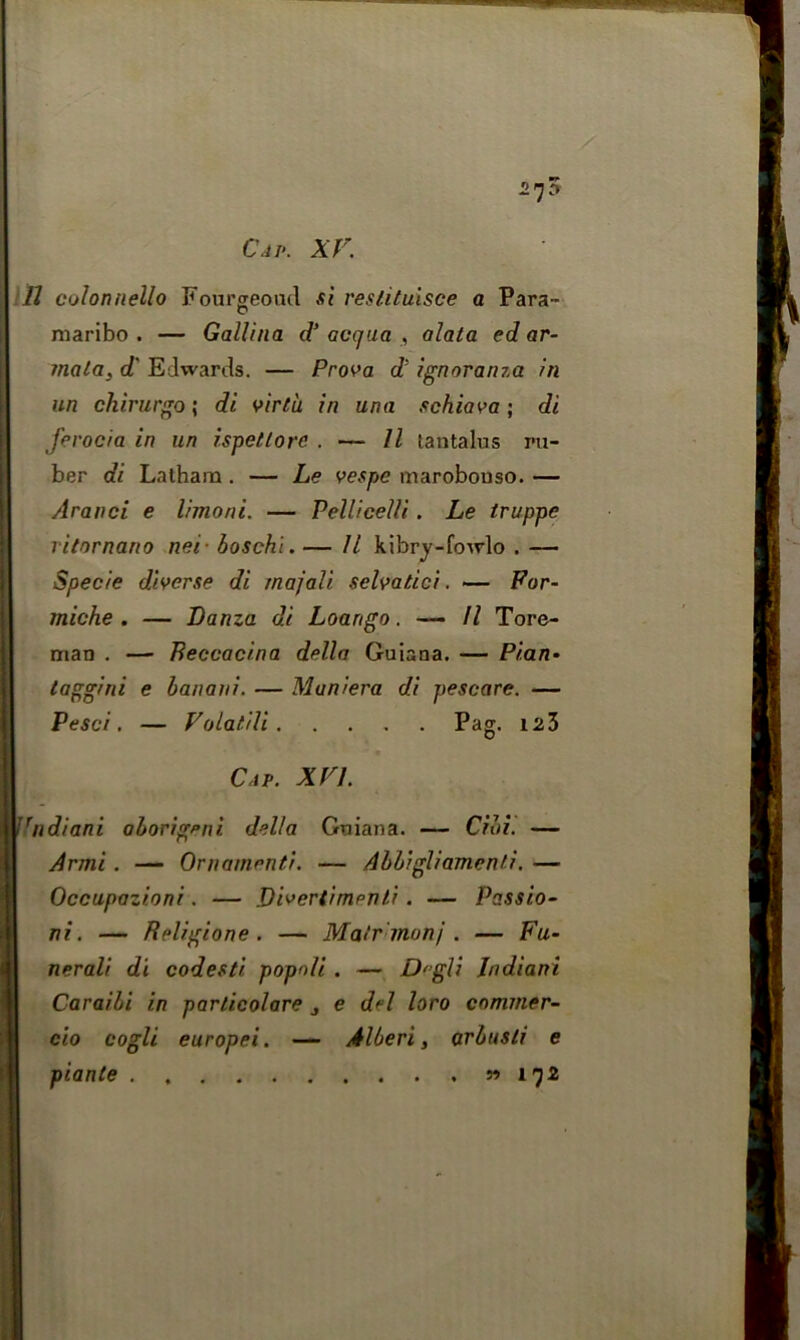 275
CAP. XV.
Il colonnello Fourgeoud si restituisce a Para-
maribo . — Gallina d' acqua , alata ed ar-
mata, d' Edwards. — Prova d' ignoranza in
un chirurgo ; di virtù in una schiava ; di
ferocia in un ispettore . — Il tantalus ru-
ber di Latham . — Le vespe marobonso. —
Aranci e limoni. — Pellicelli . Le truppe
ritornano nei boschi. — Il kibry-fowlo . —
Specie diverse di majali selvatici. — For-
miche . — Danza di Loango. — Il Tore-
man . — Beccacina della Guiana. — Pian-
taggini e banani. — Maniera di pescare. —
Pesci. — Volatili . . . . . Pag. 123
CAP. XVI.
Indiani aborigeni della Guiana. — Cibi. —
Armi . — Ornamenti. — Abbigliamenti. —
Occupazioni. — Divertimenti . — Passio-
ni. — Religione . — Matrimonj . — Fu-
nerali di codesti popoli . — Degli Indiani
Caraibi in particolare , e del loro commer-
cio cogli europei. — Alberi, arbusti e
piante . . . . . . . . . . » 172